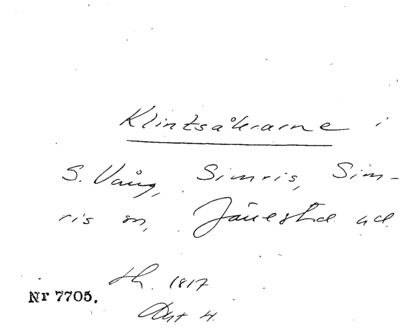 Klintsåkrarne i
S. Vång, Simris, Sim-
ris sn, Järrestad hd.
1817
Akt 4.
Nr 7705.